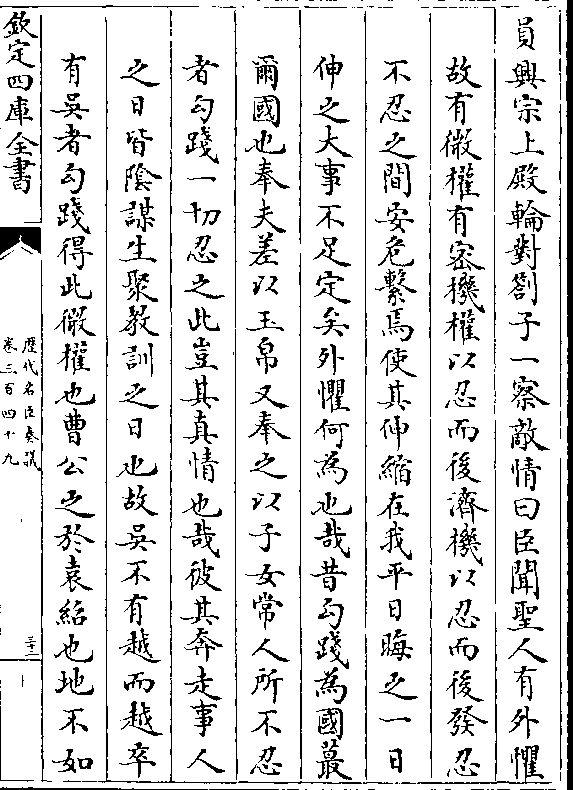 員興宗上殿輪對劄子一察敵情曰臣聞聖人有外懼
故有微權有密機權以忍而後濟機以忍而後發忍
不忍之間安危繫焉使其伸縮在我平日晦之一日
伸之大事不足定矣外懼何為也哉昔勾踐為國蕞
爾國也奉夫差以玉帛又奉之以子女常人所不忍
者勾踐一切忍之此豈其真情也哉彼其奔走事人
之日皆陰謀生聚教訓之日也故吳不有越而越卒
有吳者勾踐得此微權也曹公之於袁紹也地不如
欽定四庫全書
歷代名臣奏議
卷三百四十九